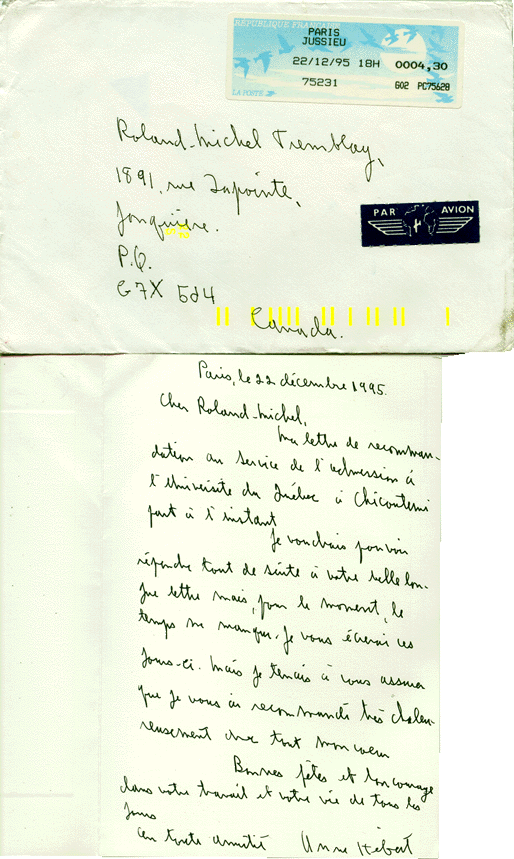 RÉPUBLIQUE FRANÇAISE
PARIS
JUSSIEU
22/12/95 18H 0004,30
75231 G02 PC75628
LA POSTE
Roland-Michel Tremblay,
1891, rue Lapointe,
Jonquière.
P.Q.
G7X 5J4
Canada.
PAR AVION
Paris, le 22 décembre 1995.
Cher Roland-Michel,
Ma lettre de recomman-
dation au service de l'admission à
l'Université du Québec à Chicoutimi
part à l'instant
Je voudrais pouvoir
répondre tout de suite à votre belle lon-
gue lettre mais, pour le moment, le
temps me manque. Je vous écrirai ces
jours-ci. Mais je tenais à vous assurer
que je vous ai recommandé très chaleu-
reusement avec tout mon coeur
Bonnes fêtes et bon courage
dans votre travail et votre vie de tous les
jours
En toute amitié Anne Hébert